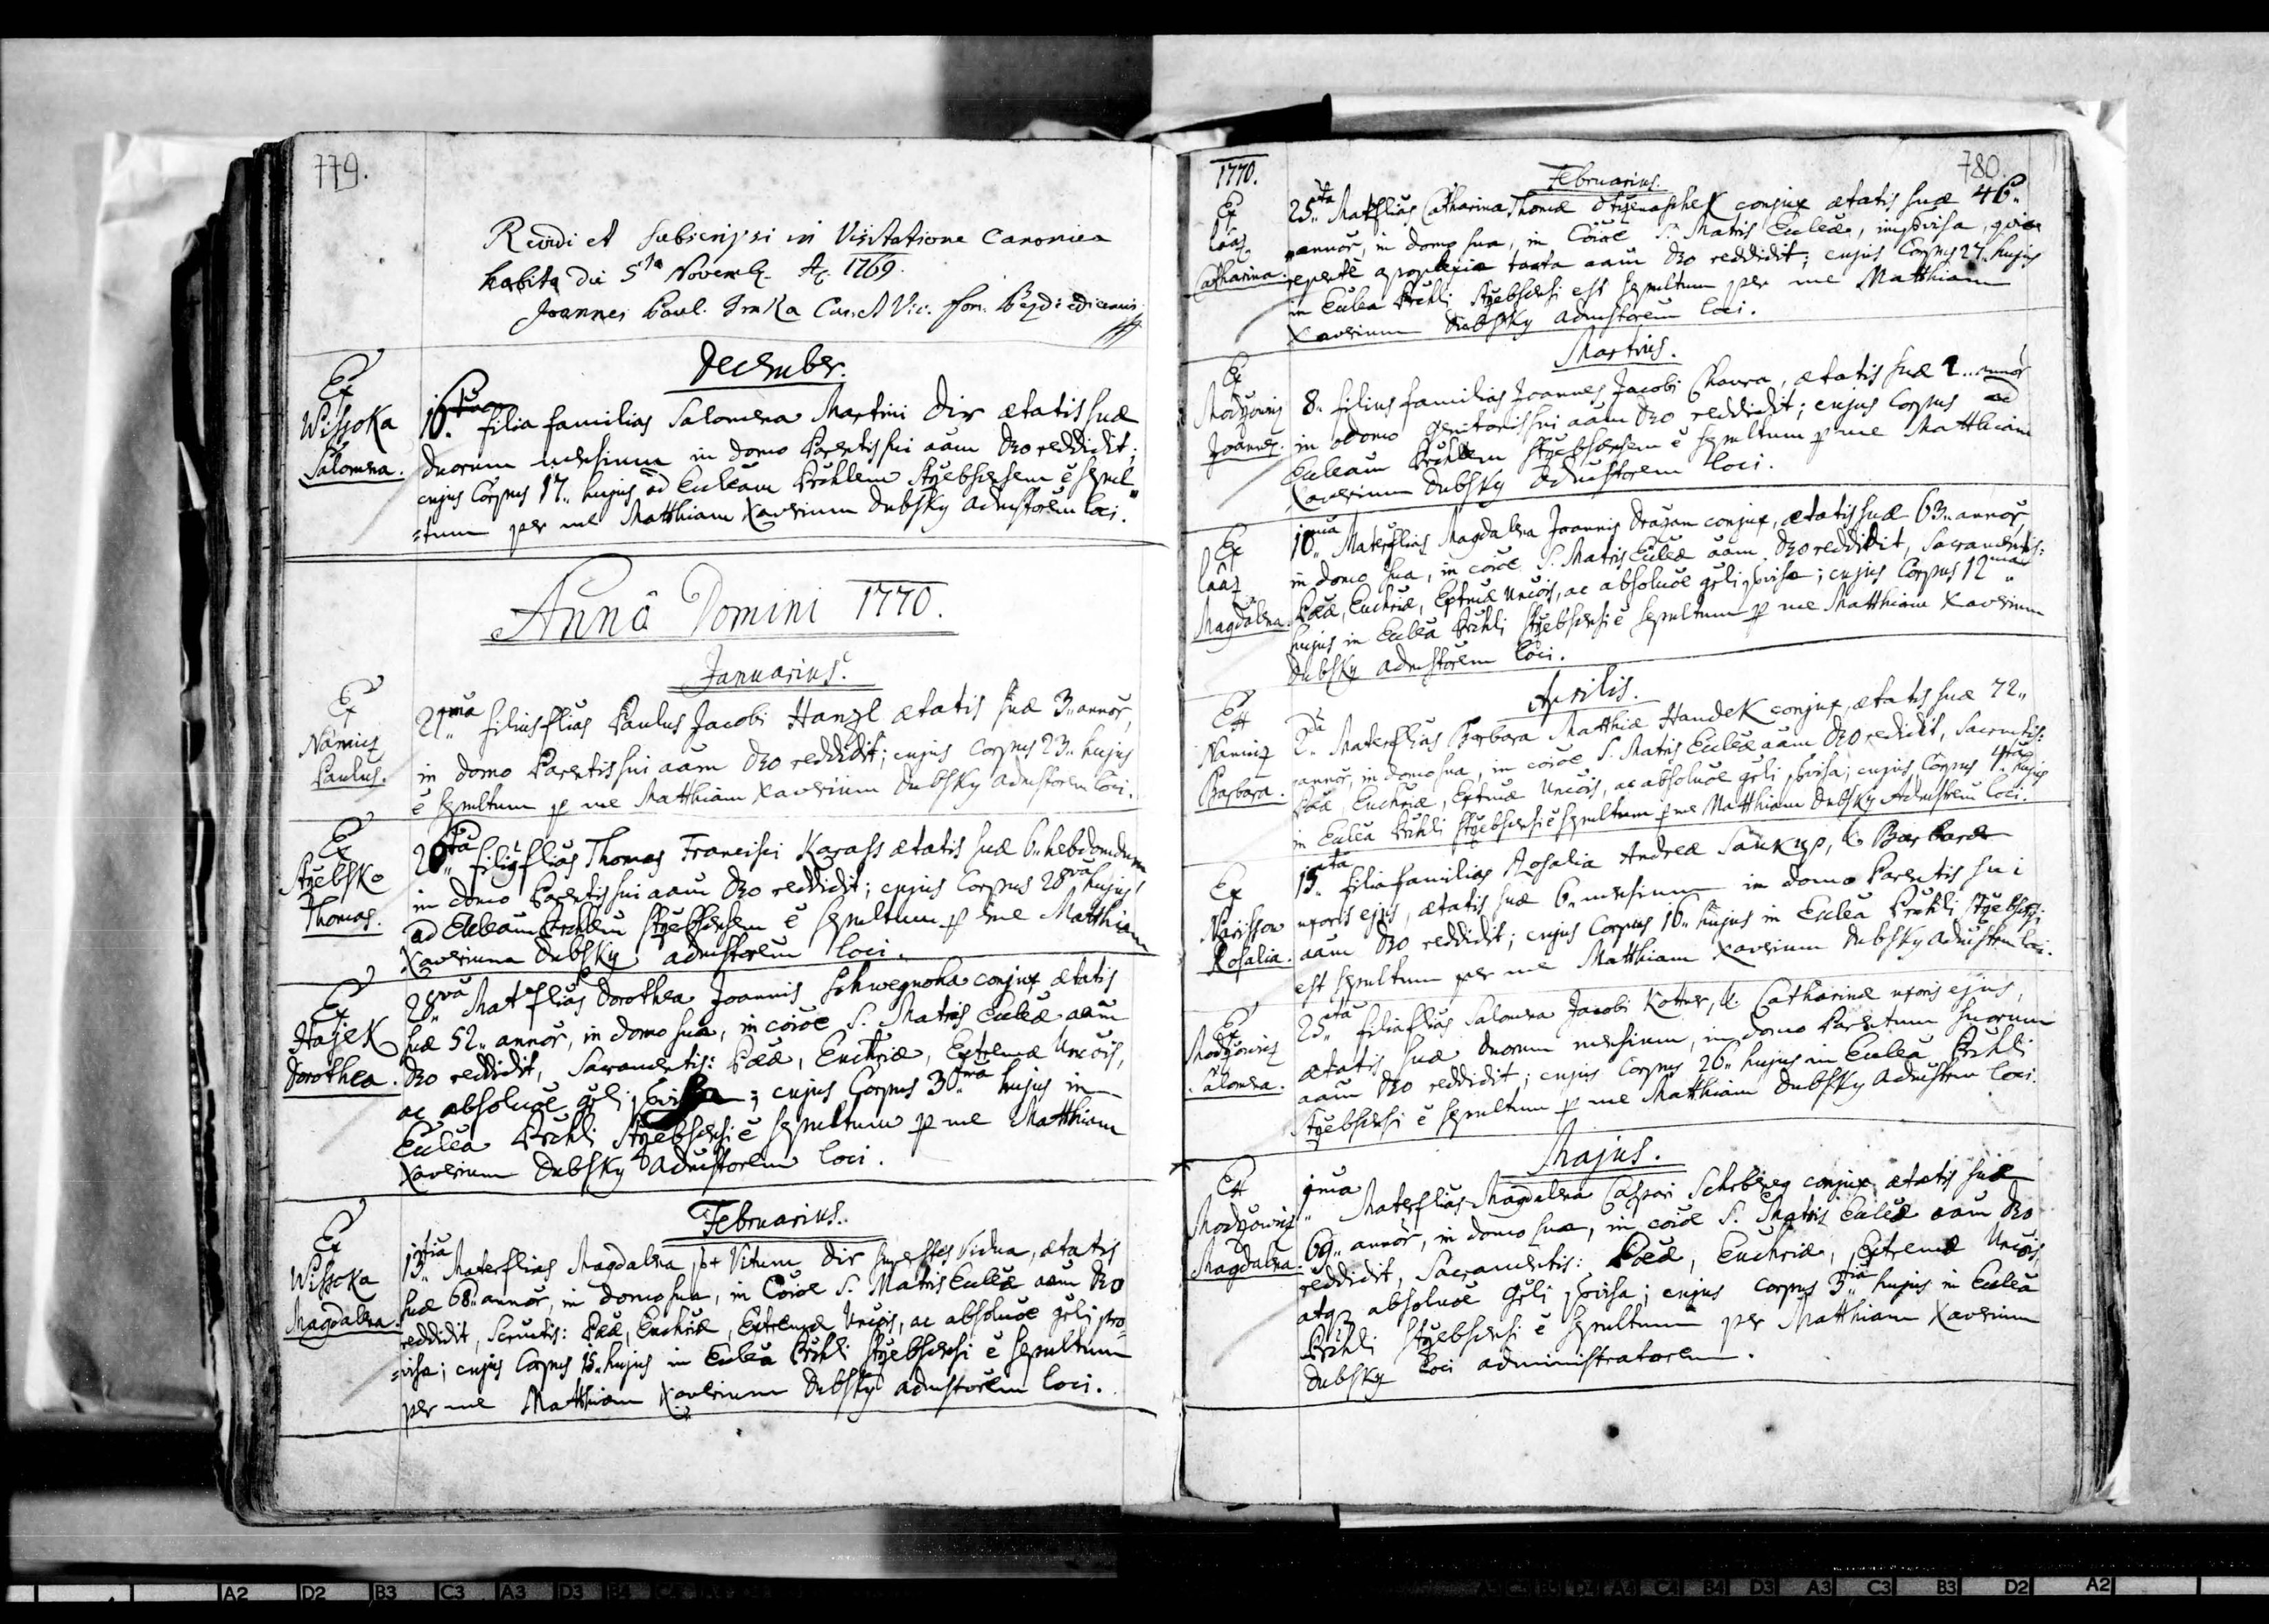 779.
Revidi et subscripsi in Visitatione Canonica
habita die 5ta Novemb. A. 1769.
Joannes Paul. Cur. et Vic. for.
December.
Ex
Wissoka
Salomena.
16. filia familias Salomena Martini Dir ætatis suæ
duorum mensium in domo Parentis sui aam Dzo reddidit;
cujus Corpus 17.. hujus ad Eccleam Prchlem Styebsensem ē sepul
=tum per me Matthiam Xaverium Dubsky Admstorem loci.
Annô Domini 1770.
Januarius.
Ex
Namicz
Paulus.
21ma filius flias Paulus Jacobi Hanzl ætatis suæ 3.. annor,
in domo Parentis sui aam Dzo reddidit; cujus Corpus 23.. hujus
ē sepultum p me Matthiam Xaverium Dubsky Admstorem loci.
Ex
Styebsko
Thomas.
26ta filig flias Thomas Francisci Karass ætatis suæ 6.. hebdomdum
in domo Parentis sui aam Dzo reddidit; cujus Corpus 28va hujus
ad Eccleam Prchlem Styebsensem ē sepultum p me Matthiam
Xaverium Dubsky admstorem loci.
Ex
Hajek
Dorothea.
28va Mat flias Dorothea Joannis Schwegnoha conjux ætatis
suæ 52.. annor, in domo sua, in coioe S. Matris Eccleæ aam
Dzo reddidit, Sacramentis: Pææ, Euchriæ, Extremæ Uncois,
ac absoluoe gēli pvisa; cujus Corpus 30ma hujus in
Ecclea Prchli Styebsensi ē sepultum p me Matthiam
Xaverium Dubsky Admstorem loci.
Februarius.
Ex
Wissoka
Magdalena.
13tia Materflias Magdalena pt Vitum Dir superstes Vidua, ætatis
suæ 68.. annor, in domo sua, in Coioe S. Matris Eccleæ aam Dzo
reddidit, Scrmtis: Pææ, Euchriæ, Extremæ Uncois, ac absoluoe gēli pro=
=visa; cujus Corpus 15.. hujus in Ecclea Prchli Styebsensi ē sepultum
per me Matthiam Xaverium Dubsky admstorem loci.
1770.
780.
Februarius.
Ex
Láaz
Catharina.
25ta Matflias Catharina Thomæ conjux ætatis suæ 46..
annor, in domo sua, in Coioe S. Matris Eccleæ, impvisa, quia
repente apoplexia tacta aam Dzo reddidit; cujus Corpus 27.. hujus
in Ecclea Prchli Styebsensi est sepultum per me Matthiam
Xaverium Dubsky Admstorem loci.
Martius.
Ex
Modzowicz
Joannes.
8.. filius familias Joannes Jacobi Chaura, ætatis suæ annor
in domo genitoris sui aam Dzo reddidit; cujus Corpus ad
Eccleam Prchlem Styebsensem ē sepultum p me Matthiam
Xaverium Dubsky Admstorem loci.
Ex
Láaz
Magdalena.
10ma Materflias Magdalena Joannis Drazan conjux, ætatis suæ 63.. annor,
in domo sua, in coioe S. Matris Eccleæ aam Dzo reddidit, Sacramentis:
Pææ, Euchriæ, Extmæ Uncois, ac absoluoe gēli pvisa; cujus Corpus 12ma
hujus in Ecclea Prchli Styebsensi ē sepultum p me Matthiam Xaverium
Dubsky admstorem loci.
Aprilis.
Ex
Namicz
Barbara.
2da Materflias Barbara Matthiæ Handek conjux, ætatis suæ 72..
annor, in domo sua, in coioe S. Matris Eccleæ aam Dzo redidit, Sacrmtis:
Pææ, Euchriæ, Extmæ Uncois, ac absoluoe gēli pvisa; cujus Corpus 4ta hujus
in Ecclea Prchli Styebsensi ē sepultum p me Matthiam Dubsky Admstrem loci.
Ex
Narissow
Rosalia.
15ta filia familias Rosalia Andreæ Saukup, & Barbaræ
uxoris ejus, ætatis suæ 6.. mensium in domo Parentis sui
aam Dzo reddidit; cujus Corpus 16.. hujus in Ecclea Prchli Styebsensi
est sepultum per me Matthiam Xaverium Dubsky Admstrem loci.
Ex
Modzowicz
Salomena.
25ta filia flias Salomena Jacobi Kotter, & Catharinæ uxoris ejus,
ætatis suæ duorum mensium, in domo Parentum suorum
aam Dzo reddidit; cujus Corpus 26.. hujus in Ecclea Prchli
Styebsensi ē sepultum p me Matthiam Dubsky Admstrem loci.
Majus.
Ex
Modzowicz
Magdalena.
1ma Materflias Magdalena Caspari conjux ætatis suæ
69.. annor, in domo sua, in coioe S. Matris Eccleæ aam Dzo
reddidit, Sacramentis: Pææ, Euchriæ, Extremæ Uncois,
atq absoluoe gēli pvisa; cujus corpus 3tia hujus in Ecclea
Prchli Styebsensi ē sepultum per Matthiam Xaverium
Dubsky loci administratorem.
A2 D2 B3 C3 A3 D3 B4
A4 C4 B4 D3 A3 C3 B3 D2 A2